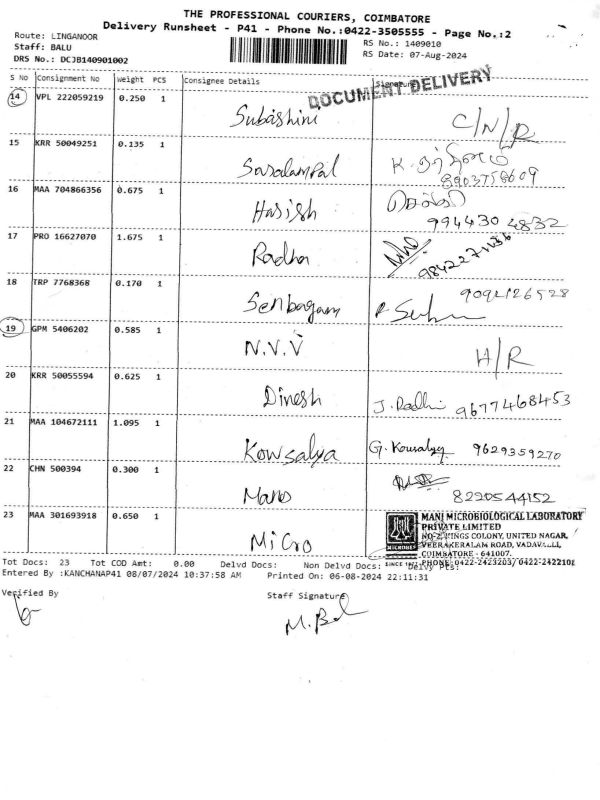 THE PROFESSIONAL COURIERS, COIMBATORE
Delivery Runsheet - P41 - Phone No.:0422-3505555 - Page No.:2
Route: LINGANOOR
Staff: BALU
DRS No.: DCJB140901002
RS No.: 1409010
RS Date: 07-Aug-2024
S No Consignment No Weight PCS Consignee Details Signature
DOCUMENT DELIVERY
14 VPL 222059219 0.250 1 Subashini C/N/R
15 KRR 50049251 0.135 1 Saralampal K.
8903758609
16 MAA 704866356 0.675 1 Harish
994430 4832
17 PRO 16627070 1.675 1 Radha
18 TRP 7768368 0.170 1 Senbagam
19 GPM 5406202 0.585 1 N.V.V H/R
20 KRR 50055594 0.625 1 Dinesh J. Radhi 9677468453
21 MAA 104672111 1.095 1 Kowsalya G. Kowsalya 9629359270
22 CHN 500394 0.300 1 Mano
8220544152
23 MAA 301693918 0.650 1 Micro
MICROBES
SINCE 1977
MANI MICROBIOLOGICAL LABORATORY
PRIVATE LIMITED
NO-2, KINGS COLONY, UNITED NAGAR,
VEERAKERALAM ROAD, VADAVALLI,
COIMBATORE - 641007.
PHONE: 0422-2423203/ 0422-2422101
Tot Docs: 23 Tot COD Amt: 0.00 Delvd Docs: Non Delvd Docs: Delvy Pts:
Entered By :KANCHANAP41 08/07/2024 10:37:58 AM Printed On: 06-08-2024 22:11:31
Verified By Staff Signature
M. Bal